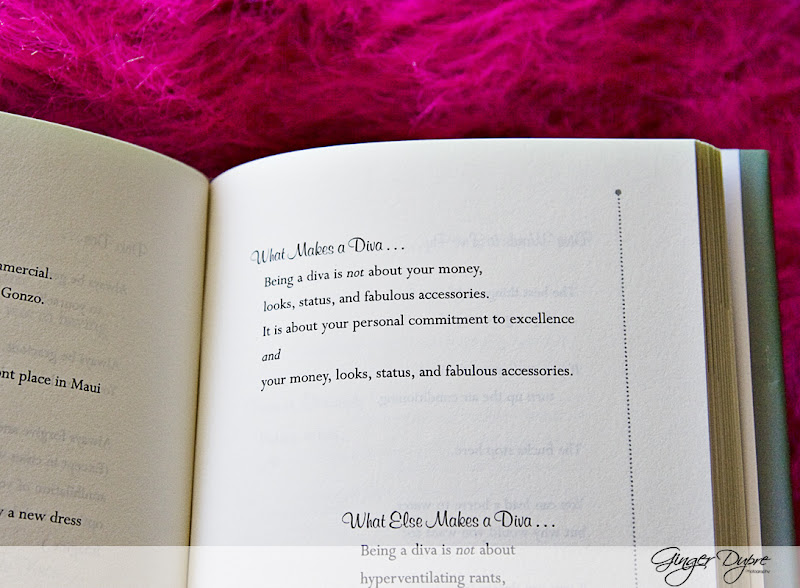 mmercial.
Gonzo.
nt place in Maui
a new dress
What Makes a Diva . . .
Being a diva is not about your money,
looks, status, and fabulous accessories.
It is about your personal commitment to excellence
and
your money, looks, status, and fabulous accessories.
What Else Makes a Diva . . .
Being a diva is not about
hyperventilating rants,
Ginger Dupre
Photography